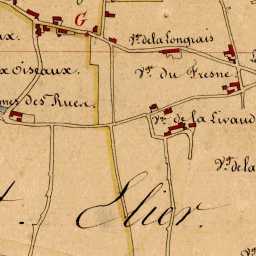 G
V.ge de la Longrais
x Oiseaux.
V.ge du Fresne
des Rues.
V.ge de la Livaud
V.ge de la
t. Elier.